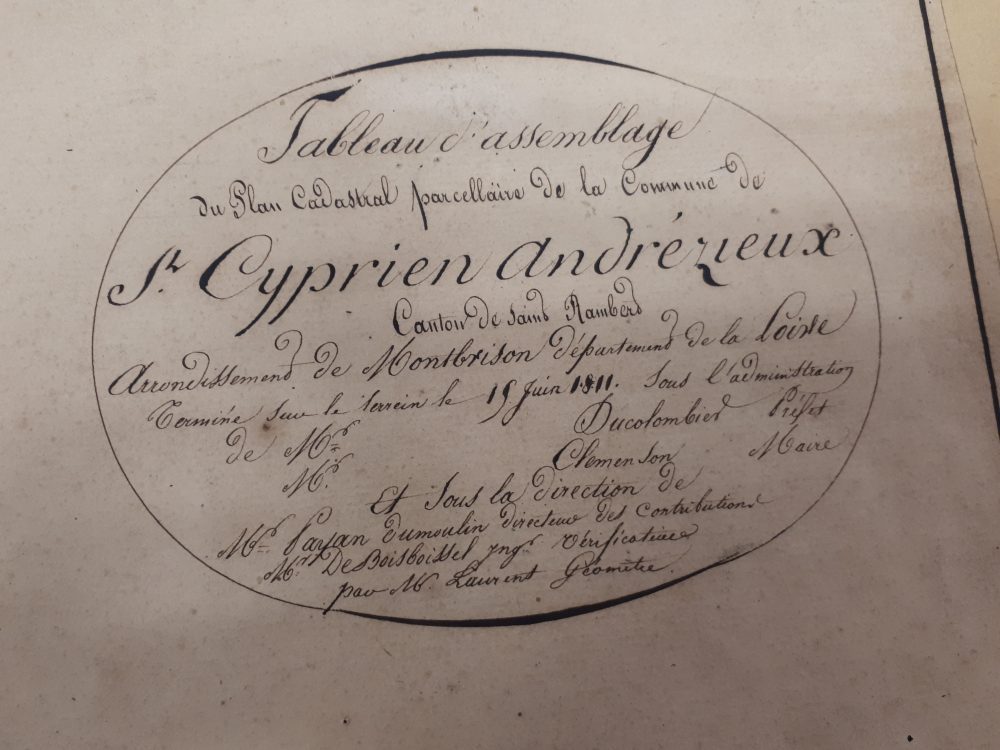 Tableau d'assemblage
du Plan Cadastral parcellaire de la Commune de
St. Cyprien Andrézieux
Canton de saint Rambert
Arrondissement de Montbrison département de la Loire
Terminé sur le terrein le 15 Juin 1811. sous l'administration
de Mr. Ducolombier Préfet
Mr. Clemenson Maire
Et sous la direction de
Mr. Payan Dumoulin directeur des contributions
Mr. De Boisboissel Ingr. Vérificateur
par Mr. Laurent Géomètre.